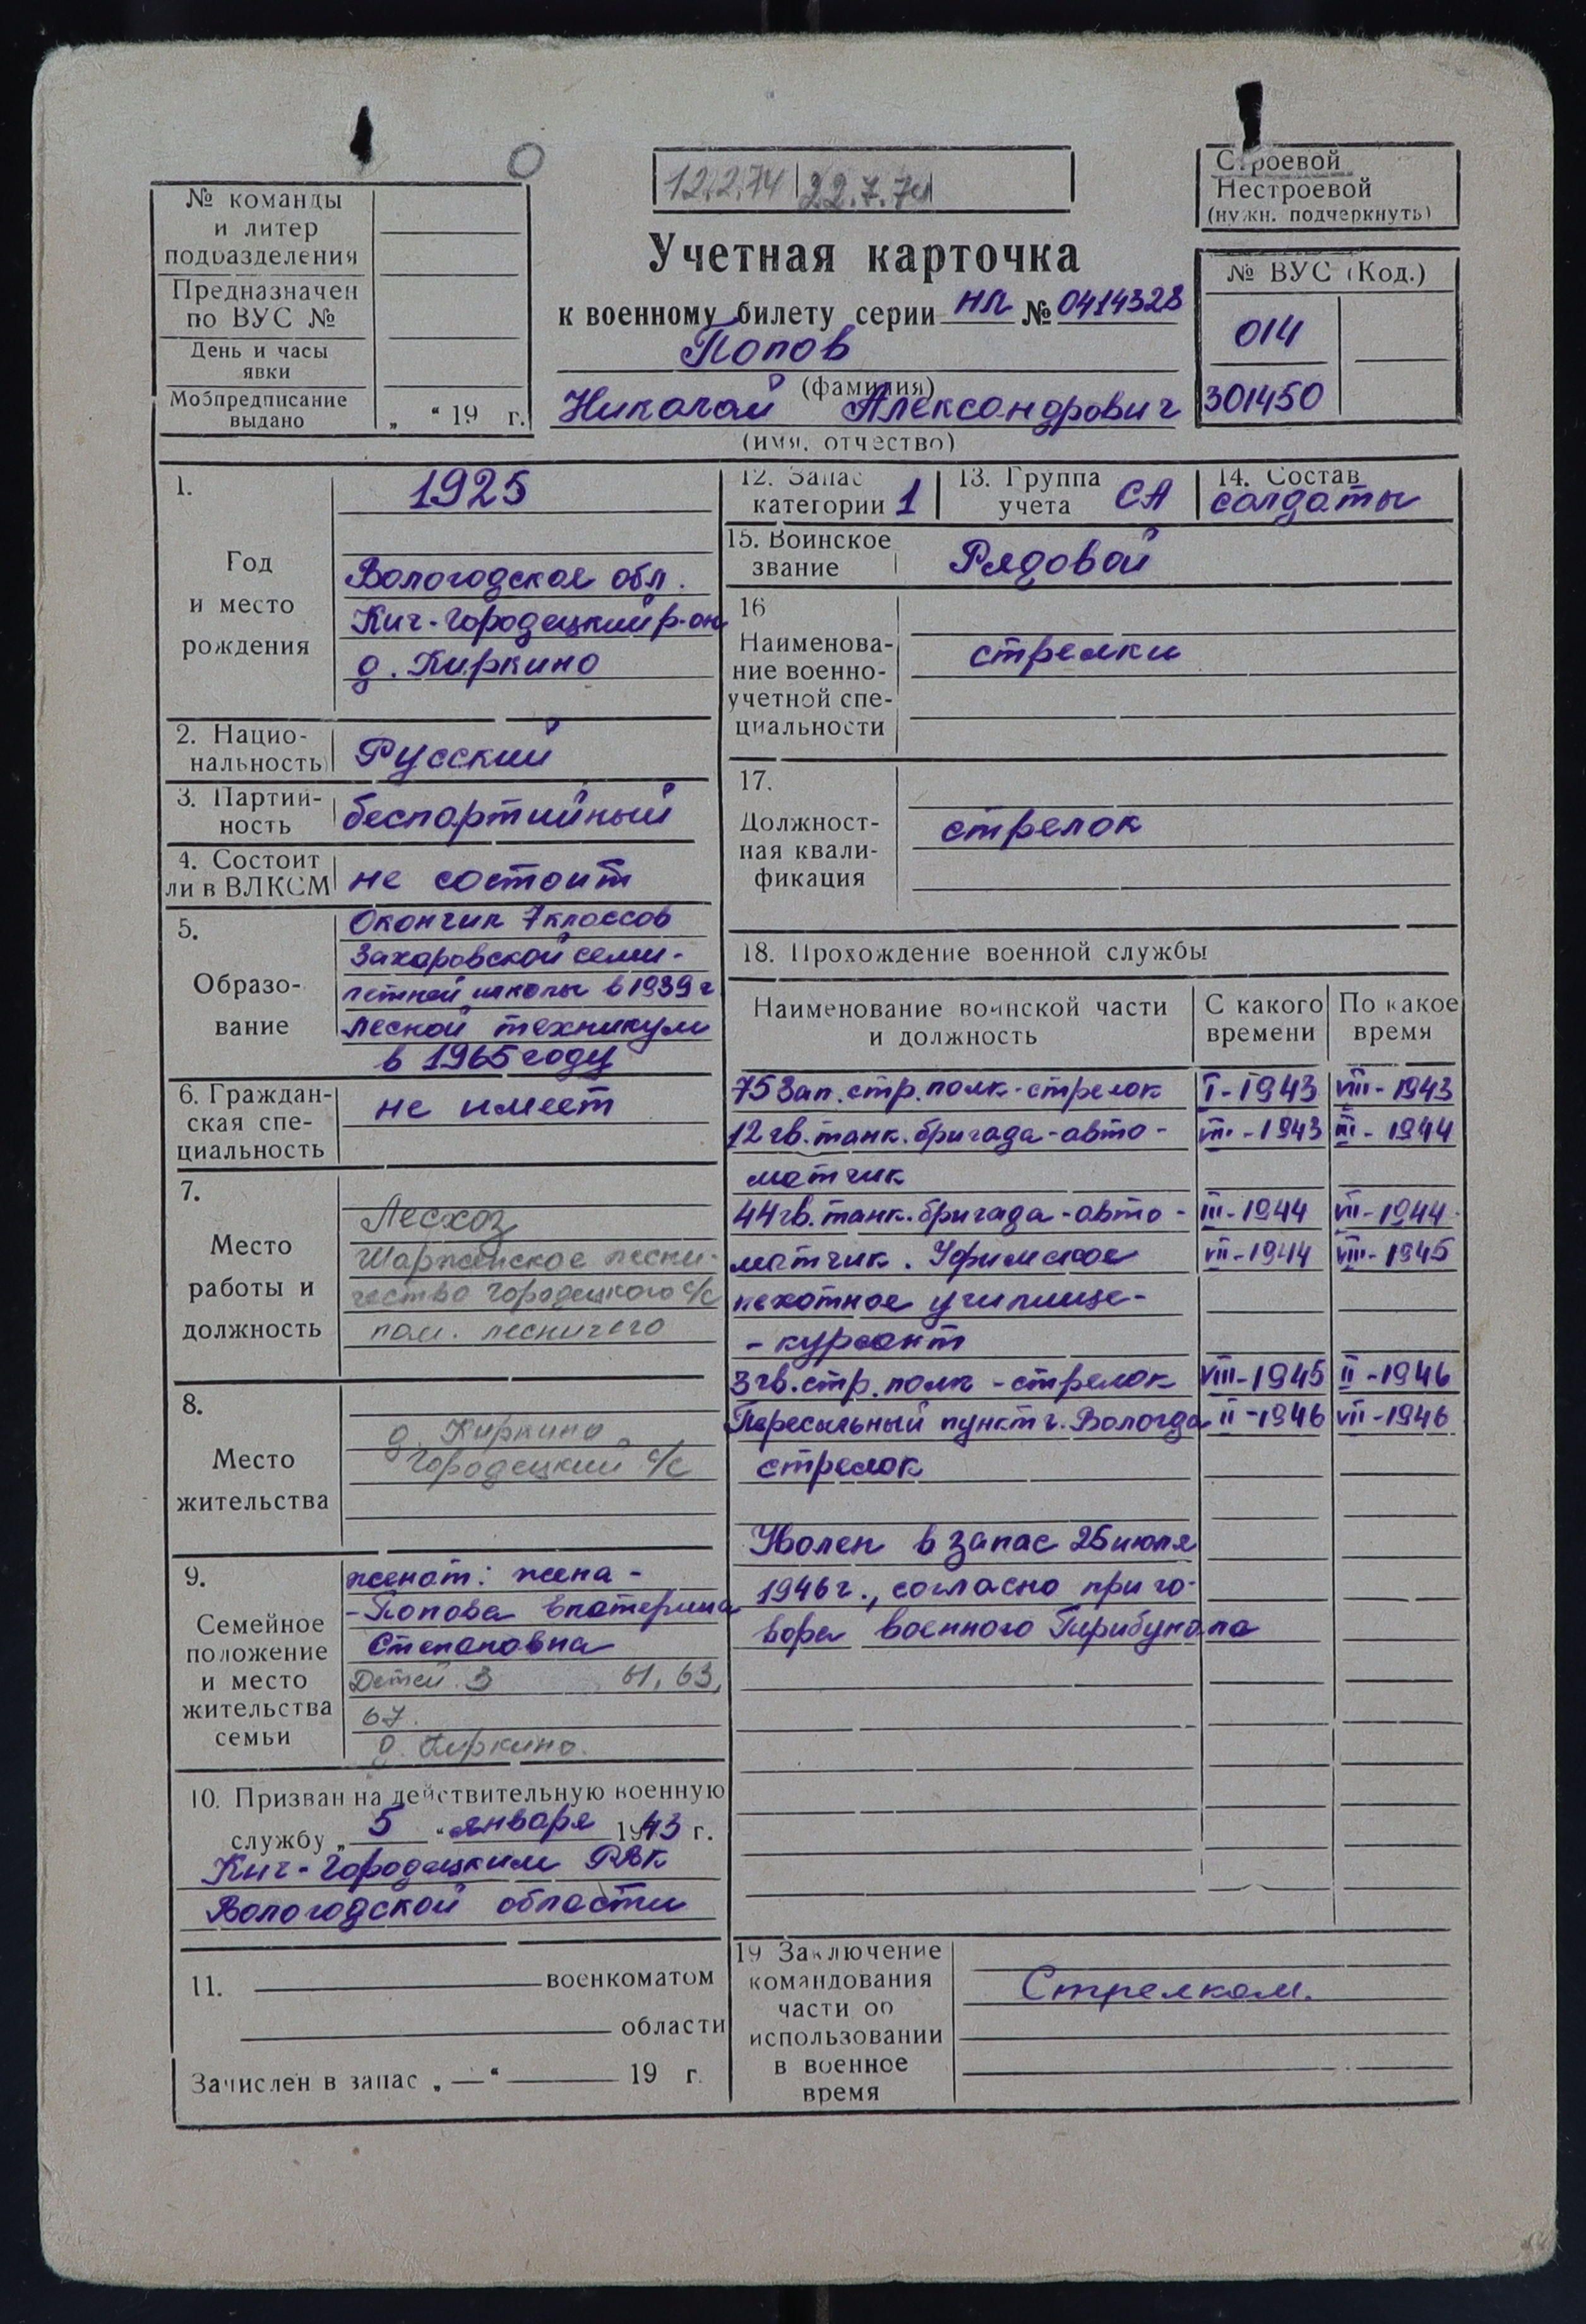 12.2.74 22.7.74
Строевой
Нестроевой
(нужн. подчеркнуть)
№ команды
и литер
подразделения
Предназначен
по ВУС №
День и часы
явки
Мобпредписание
выдано
„ “ 19 г.
Учетная карточка
к военному билету серии НЛ № 0414328
Попов
(фамилия)
Николай Александрович
(имя, отчество)
№ ВУС (Код.)
014
301450
1.
Год
и место
рождения
1925
Вологодская обл.
Кич-Городецкий р-он
д. Киркино
2. Нацио-
нальность
Русский
3. Партий-
ность
беспартийный
4. Состоит
ли в ВЛКСМ
не состоит
5.
Образо-
вание
Окончил 7 классов
Захаровской семи-
летней школы в 1939 г
Лесной техникум
в 1965 году
6. Граждан-
ская спе-
циальность
не имеет
7.
Место
работы и
должность
Лесхоз
Шарженское лесни-
чество Городецкого с/с
пом. лесничего
8.
Место
жительства
д. Киркино
Городецкий с/с
9.
Семейное
положение
и место
жительства
семьи
женат: жена -
- Попова Екатерина
Степановна
Детей 3 61, 63,
67.
д. Киркино.
10. Призван на действительную военную
службу „ 5 “ января 1943 г.
Кич-Городецким РВК
Вологодской области
11. военкоматом
области
Зачислен в запас „ — “ 19 г.
12. Запас
категории 1
13. Группа
учета СА
14. Состав
солдаты
15. Воинское
звание
Рядовой
16
Наименова-
ние военно-
учетной спе-
циальности
стрелки
17.
Должност-
ная квали-
фикация
стрелок
18. Прохождение военной службы
Наименование воинской части
и должность
С какого
времени
По какое
время
75 Зап. стр. полк - стрелок I-1943 VIII-1943
12 гв. танк. бригада - авто- VIII-1943 III-1944
матчик
44 гв. танк. бригада - авто- III-1944 VII-1944
матчик. Уфимское VII-1944 VIII-1945
пехотное училище-
- курсант
3 гв. стр. полк - стрелок VIII-1945 II-1946
Пересыльный пункт г. Вологда II-1946 VII-1946
стрелок
Уволен в запас 25 июля
1946 г., согласно приго-
вора военного Трибунала
19 Заключение
командования
части об
использовании
в военное
время
Стрелком.